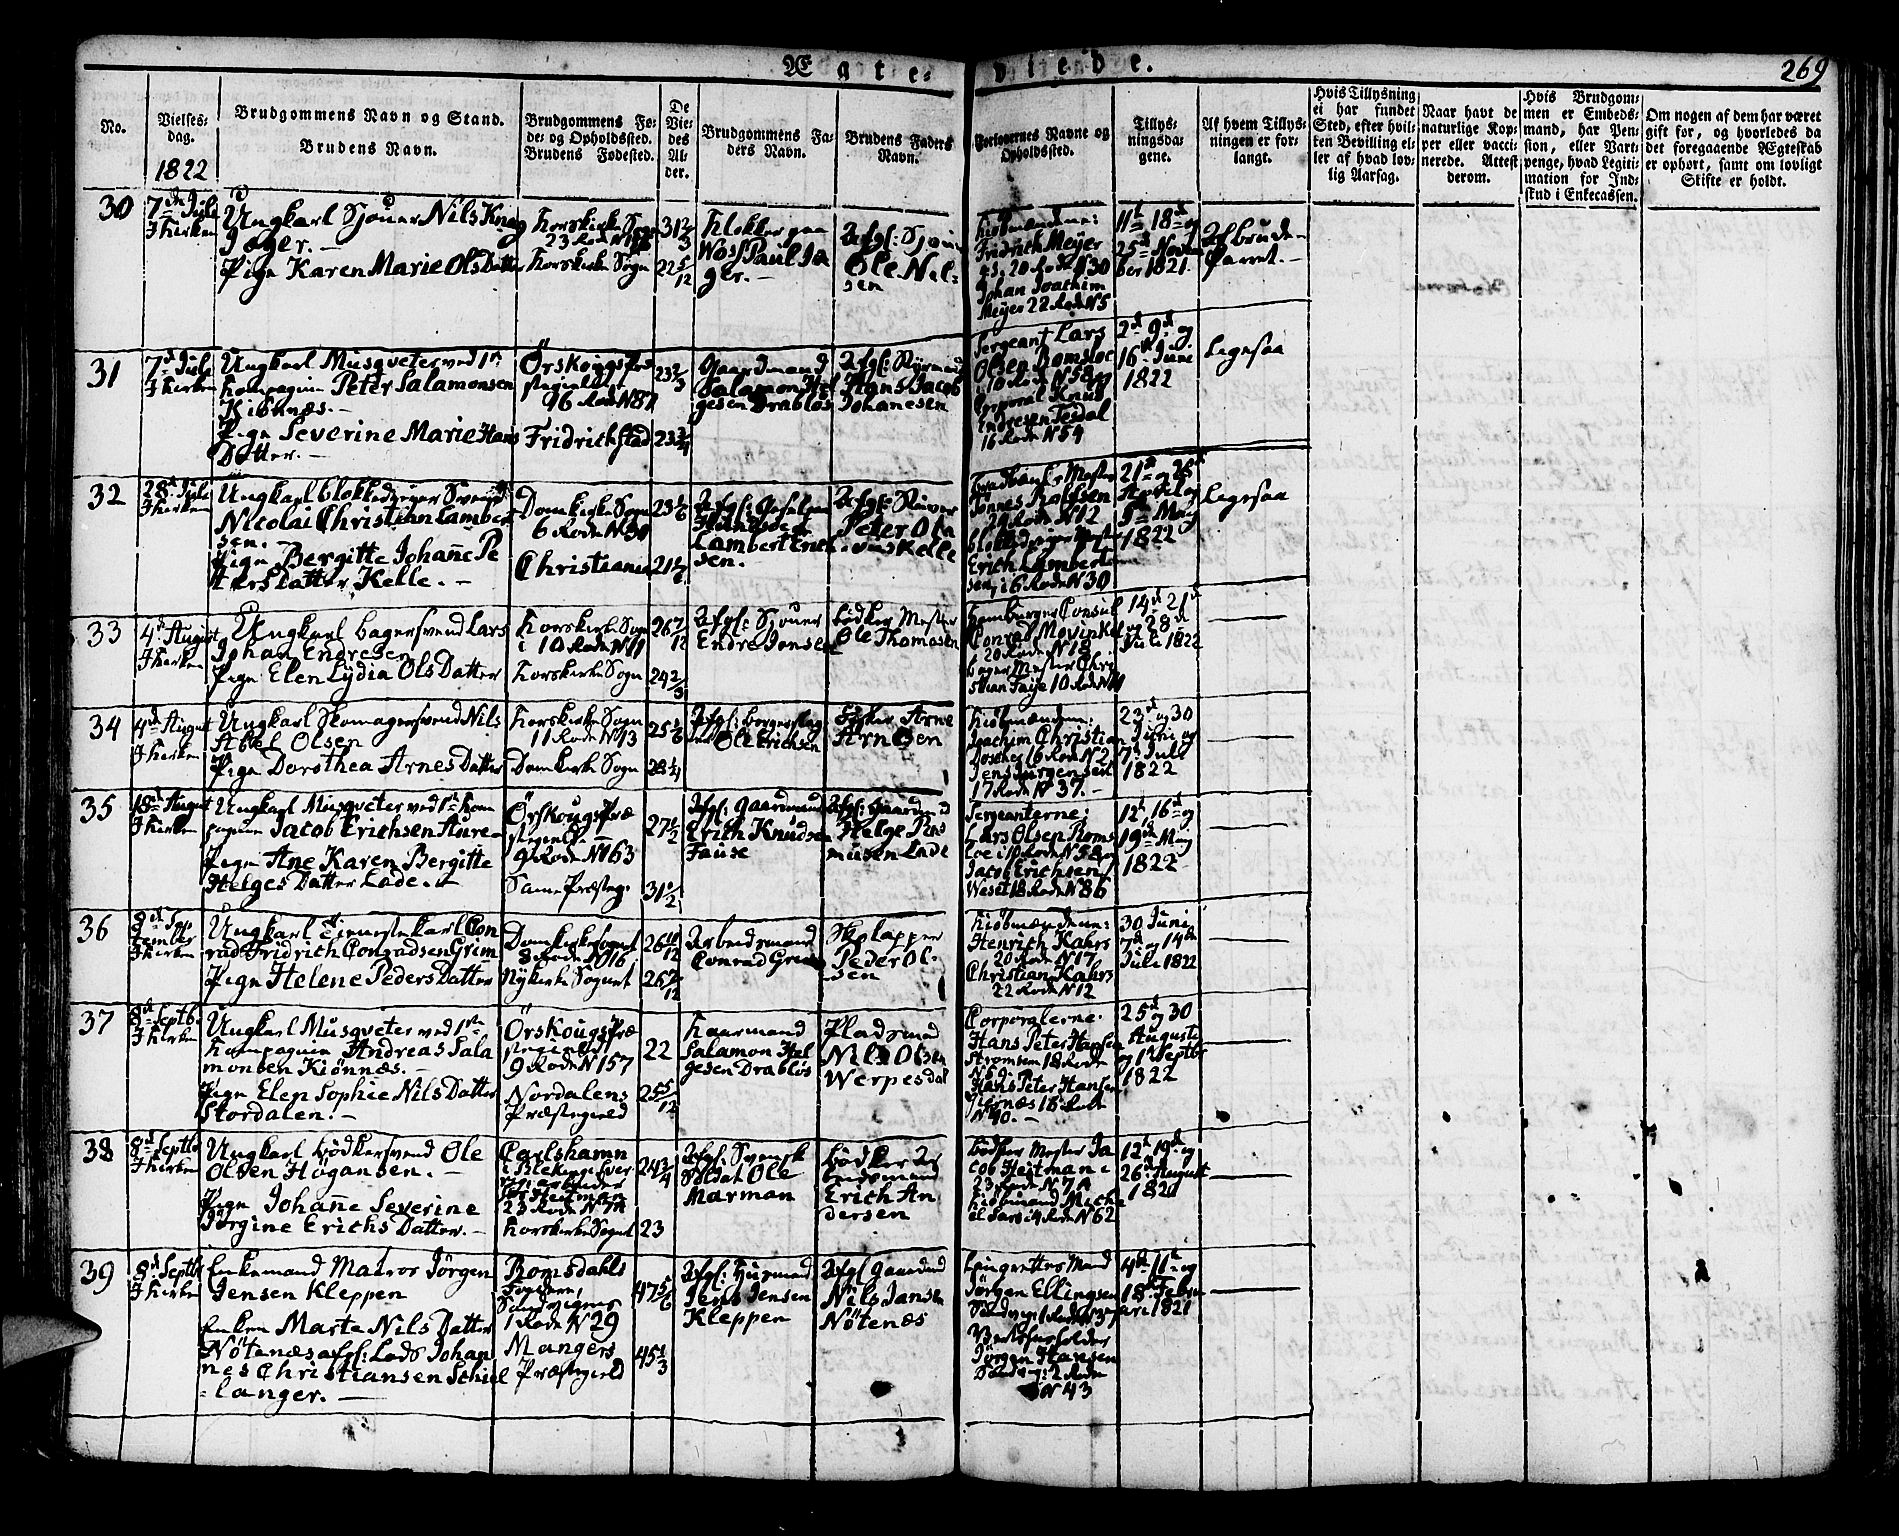 Ægteviede.
269
No.
Vielsesdag.
1822
Brudgommens Navn og Stand.
Brudens Navn.
Brudgommens Føde- og Opholdssted.
Brudens Fødested.
De Viedes Alder.
Brudgommens Faders Navn.
Brudens Faders Navn.
Forlovernes Navne og Opholdssted.
Tillysningsdagene.
Af hvem Tillysningen er forlangt.
Hvis Tillysning ei har fundet Sted, efter hvilken Bevilling eller af hvad lovlig Aarsag.
Naar havt de naturlige Kopper eller vaccinerede. Attest derom.
Hvis Brudgommen er Embedsmand, har Pension, eller Vartpenge, hvad Legitimation for Indskud i Enkecassen.
Om nogen af dem har været gift før, og hvorledes da det foregaaende Ægteskab er ophørt, samt om lovligt Skifte er holdt.
30
7de Juli
I Kirken
Ungkarl Sjouer Nils Knag
Jæger. —
Pige Karen Marie Ols Datter
Korskirke Sogn
23 Rode N
Korskirke Sogn
31 2/3
22 5/12
Klokker paa
Woss Paul Jæ
ger. —
Afgl: Sjouer
Ole Nil-
sen
Kiøbmændene:
Fridrich Meyer
20 Rode N 30
Johan Joachim
Meyer 22 Rode N 5
11te 18de og
25de Novem
ber 1821.
Af brude-
parret. —
31
7de Juli
I Kirken
Ungkarl Musqveter ved 1ste
Kompagnie Peter Salamonsen
Kibnæs. —
Pige Severine Marie Hans
Datter. —
Ørskougs Præ
stegield
16 Rode N 87
Fridrichstad
23 2/3
23 3/4
Gaardmand
Salamon Hel
gesen Drabløs
Afgl: Styrmand
Hans Jacob
Johanesen
Sergeant Lars
Olsen Romsloe
10 Rode N 58 og
Corporal Knud
Endresen Tesdal
16 Rode N 54
2de 9de og
16de Juni
1822
Ligesaa
32
28de Juli
I Kirken
Ungkarl blokkedreyer Svend
Nicolai Christian Lambert
sen. —
Pige Bergitte Johañe Pe
ters Datter Kelle. —
Domkirke Sogn
6 Rode N 30
Christiania
23 1/6
21 1/2
Lambert Erich-
sen.
Afgl: Skriver
Peter Ola
vius Kelle
Tønnes Rolfsen
Rode N 12
Erich Lambert
sen, i 6 Rode N 30
21de og 28de
April og
5te May
1822
Ligesaa
33
4de August
I Kirken
Ungkarl bagersvend Lars
Johan Endresen
Pige Elen Lydia Ols Datter
Korskirke Sogn
i 10 Rode N 11
Korskirke Sogn
26 7/12
24 2/3
Afgl: Sjouer
Endre Jonsen
bødker Mester
Ole Thomasen
Hamburger Consul
Conrad Mowinkel
20 Rode N 18
bager Mester Chri
stian Faije 10 Rode N 11
14de 21de
og 28de
Juli 1822
34
4de August
I Kirken
Ungkarl Skomagersvend Nils
Abel Olsen
Pige Dorothea Arnes Datter
Korskirke Sogn
11 Rode N 13
Domkirke Sogn
25 1/6
28 1/4
Afgl: borgerslag
ter Ole Erichsen
Fisker Arne
Arnesen
Kiøbmændene:
Joachim Christian
Døscher 16 Rode N 2
Jens Jürgensen
17 Rode N 37. —
23de og 30
Juni og
7de Juli
1822
35
18de August
I Kirken
Ungkarl Musqveter ved 1ste Kom
pagnie Jacob Erichsen Aure-
Pige Ane Karen Bergitte
Helges Datter Lade. —
Ørskougs Præ
stegield
9 Rode N 163
Same Præsteg.
27 1/2
31 1/2
Afgl: gaardmand
Erich Knudsen
Fause
Afgl: gaardmand
Helge Ras
musen Lade
Sergeanterne:
Lars Olsen Roms
loe i 10 Rode N 58 og
Jacob Erichsen
Weset 18 Rode N 86
12te, 16de og
19de May
1822
36
8de Sep
tember
I Kirken
Ungkarl tienestekarl Con
rad Fridrich Conradsen Grim
Pige Helene Peders Datter
Domkirkesognet
8 Rode N 16
Nykirke Sognet
26 10/12
26 7/12
Arbeidsmand
Conrad Grim
Skolapper
Peder Ol-
sen
Kiøbmændene:
Henrich Kahrs
20 Rode N 17
Christian Kahrs
22 Rode N 12
30 Juni
7de og 14de
Juli 1822
37
8de Septb.
I Kirken
Ungkarl Musqveter ved 1ste
Kompagnie Andreas Sala
monsen Kiønnæs. —
Pige Elen Sophie Nils Datter
Stordalen. —
Ørskougs Præ
stegield
9 Rode N 157
Nordalens
Præstegield
22
25 5/12
Gaarmand
Salamon Hel
gesen Drabløs
Pladsmand
Nils Olsen
Werpesdal
Corporalerne.
Hans Peter Hansen
Strømsem 18 Rode
N 59.
Hans Peter Hansen
16 Rode
N 40. —
25de og 30
Augusti
og 1ste Septbr
1822
38
8de Septb
I Kirken
Ungkarl bødkersvend Ole
Olsen Hagansen. —
Pige Johañe Severine
Jørgine Erichs Datter. —
Carlshamn
i Blekinge Sver
rig, arbeider
hos Heitman
23 Rode N 7A
Korskirke Sognet
24 3/4
23
Afgl. Svensk
Soldat Ole
Marman
Bødker Ar
beidsmand
Erich An
dersen
bødker Mester Ja
cob Heitman i
23 Rode N 7A
kiøbmand Mich
el Sars i 4 Rode N 62
12te 19de og
26de August
1821
39
8de Septb
I Kirken
Enkemand Matros Jörgen
Jensen Kleppen
Enken Marte Nils Datter
Nötenæs afgl: Lods Johan
nes Christiansen Schiel
langer. —
Romsdahls
Fogderie,
Sandvigens
1 Rode N 29
Mangers
Præstegield
47 5/6
45 1/3
Afgl: Husmand
Jens Jensen
Kleppen
Afgl Gaardmd
Nils Jansen
Nötenæs
Lazarettes Mand
Jørgen Ellingsen
Sandvig 1 Rode N 37
Jörgen Hansen
Sandvig: 2 Rode
N 43
4de 11te og
18de Febru
ari 1821